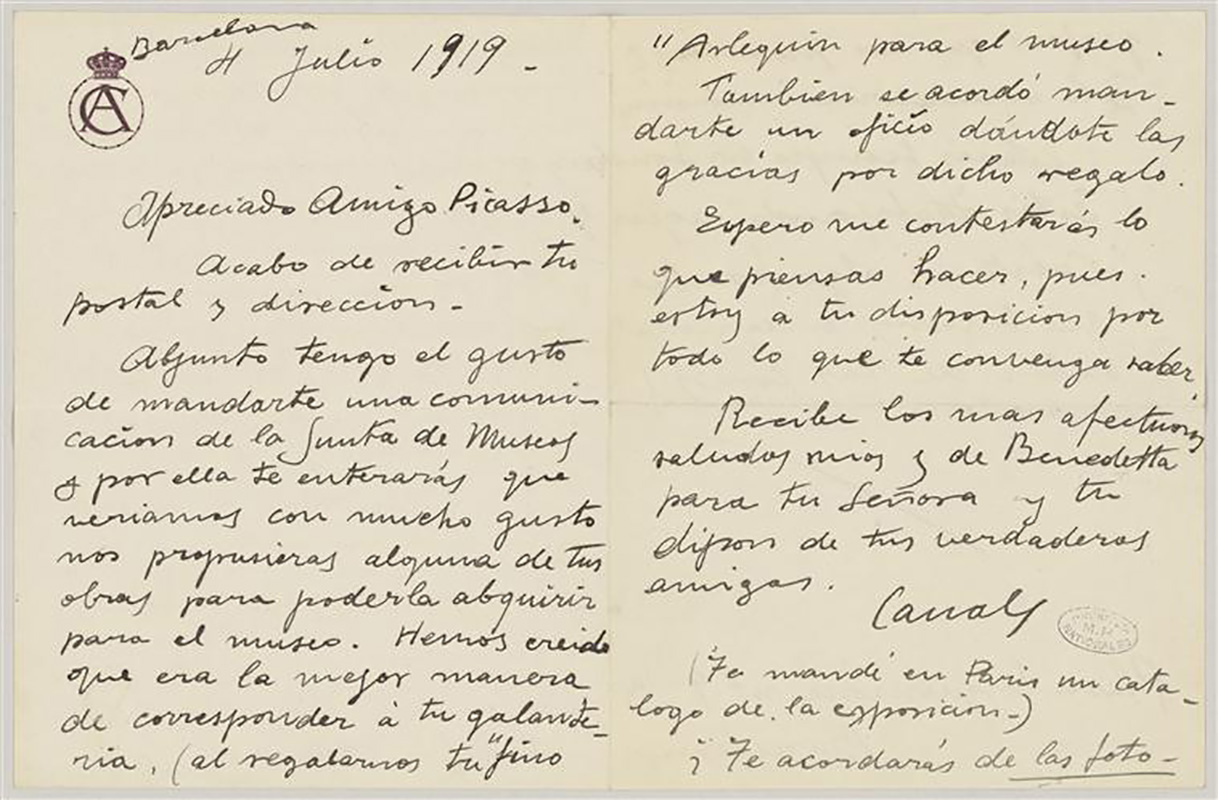 Barcelona
4 Julio 1919 -
CA
Apreciado Amigo Picasso.
Acabo de recibir tu
postal y direccion -
Abjunto tengo el gusto
de mandarte una comuni-
cacion de la Junta de Museos
y por ella te enterarás que
veriamos con mucho gusto
nos propusieras alguna de tus
obras para poderla abquirir
para el museo. Hemos creido
que era la mejor manera
de corresponder à tu galante-
ria, (al regalarnos tu "fino
"Arlequin para el museo.
Tambien se acordó man-
darte un oficio dándote las
gracias por dicho regalo.
Espero me contestarás lo
que piensas hacer, pues.
estoy à tu disposicion por
todo lo que te convenga saber.
Recibe los mas afectuosos
saludos mios y de Benedetta
para tu Señora y tu
dispon de tus verdaderos
amigos.
Canals
(Te mandé en Paris un cata-
logo de la exposicion-)
¿ Te acordarás de las foto-